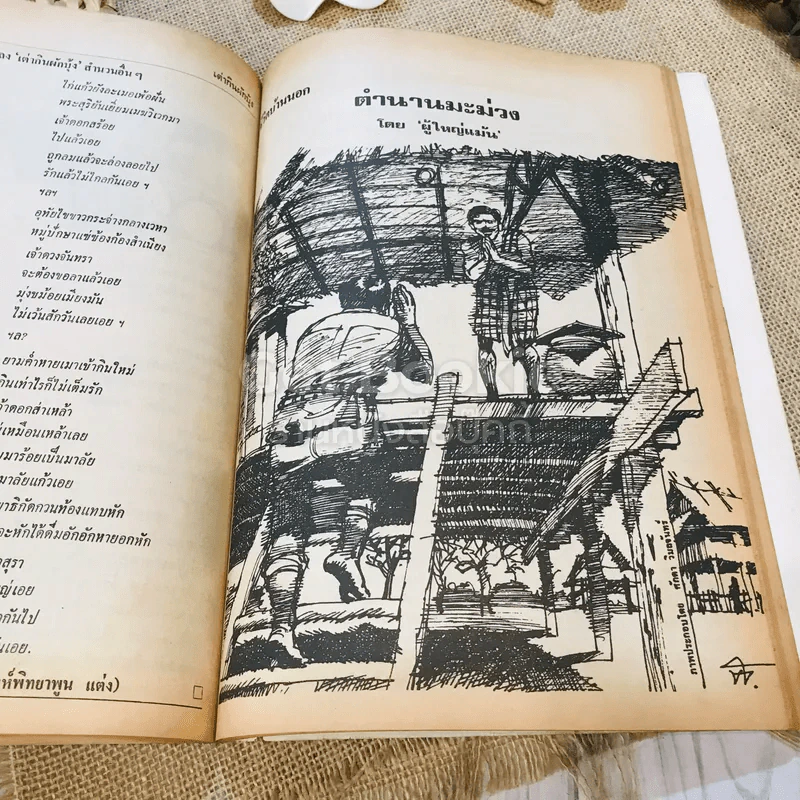 ลง 'เต่ากินผักบุ้ง' สำนวนอื่น ๆ
เต่ากินผักบุ้ง
ไก่แก้วยังละเมอเพ้อฝัน
พระสุริยันเยี่ยมเมฆวิเวกมา
เจ้าดอกสร้อย
ไปแล้วเอย
ถูกลมแล้วจะล่องลอยไป
รักแล้วไม่ไกลกันเอย ฯ
ฯลฯ
อุทัยไขขาวกระจ่างกลางเวหา
หมู่ปักษาแซ่ซ้องก้องสำเนียง
เจ้าดวงจันทรา
จะต้องขอลาแล้วเอย
มุ่งขม้อยเมียงมัน
ไม่เว้นสักวันเลยเอย ฯ
ฯล?
ยามค่ำหายเมาเข้ากินใหม่
กินเท่าไรก็ไม่เต็มรัก
จ้าดอกส่าเหล้า
เหมือนเหล้าเลย
มาร้อยเป็นมาลัย
มาลัยแก้วเอย
าธิกัดกวนท้องแทบหัก
ะหักได้ดื่มอักอักหายอกหัก
สุรา
ญ่เอย
กันไป
นเอย.
ห์พิทยาพูน แต่ง)
บ้านนอก
ตำนานมะม่วง
โดย 'ผู้ใหญ่แม้น'
ภาพประกอบโดย ศักดา วิมลจันทร์